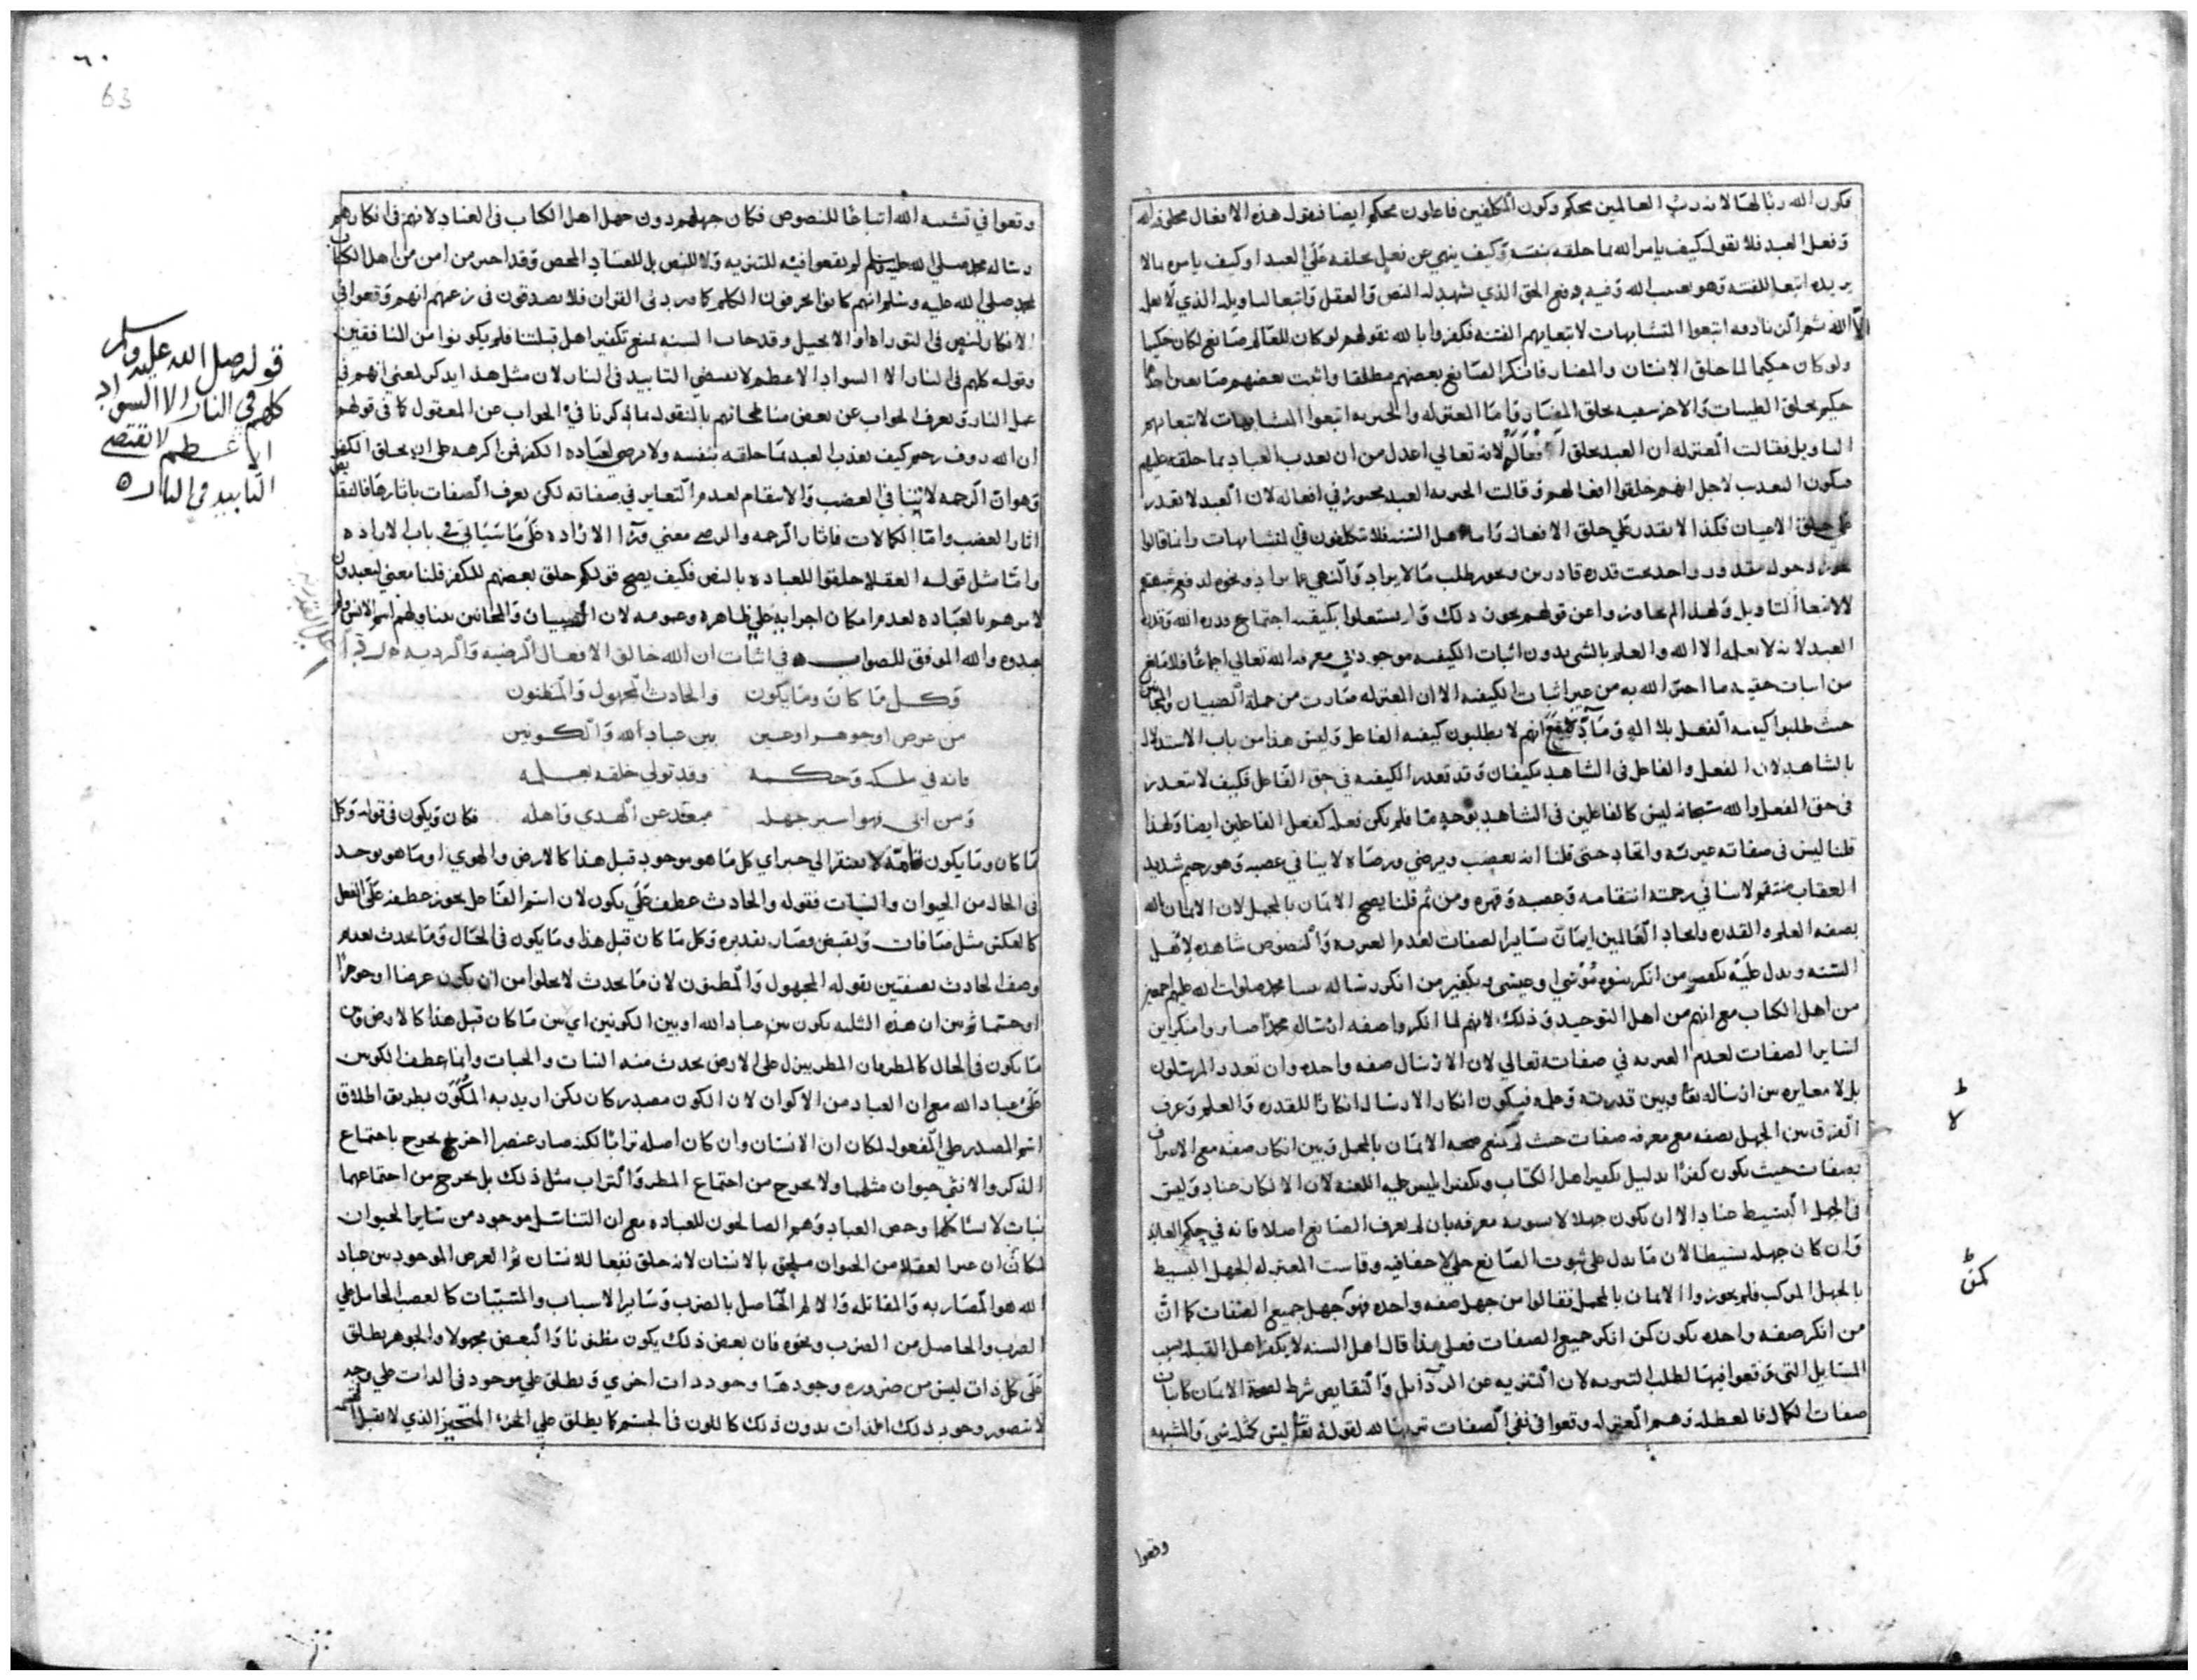 فكون الله ربا لهما لانه رب العالمين محكم وكون المكلفين فاعلون محكم ايضا فنقول هذه الافعال مخلوقه لله
وفعل العبد فلا نقول كيف يامر الله بما خلقه بنفسه وكيف ينهي عن فعل يخلقه في العبد او كيف يامره بما لا
يريده اتبعا للفتنه وهو بعيب الله وفيه دفع الحق الذي شهد له النص والعقل واتبعا لتاويله الذي لا يعلمه
الا الله ثم الزنادقه اتبعوا المتشابهات لابتغايهم الفتنه فكفروا بالله بقولهم لو كان للعالم صانع لكان حكيما
ولو كان حكيما لما خلق الانسان والمضار فانكر الصانع بعضهم مطلقا واثبت بعضهم صانعين احدهما
حكيم يخلق الطيبات والاخر سفيه يخلق المضار واما المعتزله والجبريه اتبعوا المتشابهات لابتغايهم
التاويل فقالت المعتزله ان العبد يخلق افعاله لانه تعالي اعدل من ان يعذب العباد بما خلقه عليهم
فيكون التعذيب لاجل انهم خلقوا افعالهم وقالت الجبريه العبد مجبور في افعاله لان العبد لا يقدر
علي خلق الاعيان فكذا لا يقدر علي خلق الافعال واما اهل السنه فلا يتكلفون في المتشابهات وانما قالوا
يجوز دخول مقدور واحد تحت قدره قادرين ويجوز طلب ما لا يراد والنهي عما يراد ونحوه لدفع شبهتهم
لا لابتغا التاويل ولهذا لم يجاوزوا عن قولهم يجوز ذلك ولم يشتغلوا بكيفيه اجتماع قدره الله وقدره
العبد لانه لا يعلمه الا الله والعلم بالشي بدون اثبات الكيفيه موجود في معرفه الله تعالي اجماعا فلا مانع
من اثبات حقيه ما اخبر الله به من غير اثبات الكيفيه الا ان المعتزله صارت من جملة الصبيان والمجانين
حيث طلبوا كيفيه الفعل بلا اله ومادة مع انهم لا يطلبون كيفيه الفاعل وليس هذا من باب الاستدلال
بالشاهد لان الفعل والفاعل في الشاهد مكيفان وقد تعذر الكيفيه في حق الفاعل فكيف لا يتعذر
في حق الفعل والله سبحانه ليس كالفاعلين في الشاهد بوجه ما فلم يكن فعله كفعل الفاعلين ايضا ولهذا
قلنا ليس في صفاته غيريه واتحاد حتى قلنا انه يغضب ويرضي ورضاه لا ينافي غضبه وهو رحيم شديد
العقاب منتقم لا ينافي رحمته انتقامه وغضبه وقهره ومن ثم قلنا يصح الايمان بالمجمل لان الايمان بالله
بصفه العلم والقدره وايجاد العالمين ايمان بساير الصفات لعدم الغيريه والنصوص شاهده لاهل
السنه ويدل عليه تكفير من انكر بنبوه موسي او عيسى بتكفير من انكر رسالة نبينا محمد صلوات الله عليهم اجمعين
من اهل الكتاب مع انهم من اهل التوحيد وذلك لانهم لما انكروا صفه ارسال محمد صاروا منكرين
لساير الصفات لعدم الغيريه في صفاته تعالي لان الارسال صفه واحده وان تعدد المرسلون
بل لا مغايره بين ارساله تعا وبين قدرته وعلمه فيكون انكار الارسال انكارا للقدره والعلم وعرف
الفرق بين الجهل بصفه مع معرفه صفات حيث لم يمنع صحه الايمان بالمجمل وبين انكار صفه مع الاعتراف
بصفات حيث يكون كفرا بدليل تكفير اهل الكتاب وتكفير ابليس عليه اللعنه لان الانكار عناد وليس
في الجهل البسيط عناد الا ان يكون جهلا لا يشوبه معرفه بان لم يعرف الصانع اصلا فانه في حكم العابد
وان كان جهله بسيطا لان ما يدل علي ثبوت الصانع جلي لا خفا فيه وقاست المعتزله الجهل البسيط
بالجهل المركب فلم يجوزوا الايمان بالمجمل فقالوا من جهل صفه واحده فهو كجهل جميع الصفات كما ان
من انكر صفه واحده يكون كمن انكر جميع الصفات فعلي هذا قال اهل السنه لا يكفر اهل القبله بسبب
المسايل التي وقعوا فيها لطلب التنزيه لان التنزيه عن الرذايل والنقايص شرط لصحة الايمان كاثبات
صفات الكمال فالمعطله وهم المعتزله وقعوا في نفي الصفات تنزيها لله لقوله تعا ليس كمثله شي والمشبهه
وقعوا
ط
لا
٦٠
63
وقعوا في تشبيه الله اتباعا للنصوص فكان جهلهم دون جهل اهل الكتاب في العناد لانهم في انكارهم
رساله محمد صلي الله عليه وسلم لم يقعوا فيه للتنزيه ولا للنص بل للعناد المحض وقد اخبر من امن من اهل الكتاب
بمحمد صلي الله عليه وسلم انهم كانوا يحرفون الكلم كما ورد في القران فلا يصدقون في زعمهم انهم وقعوا في
الانكار لنص في التوراه او الانجيل وقد جاءت السنه بمنع تكفير اهل قبلتنا فلم يكونوا من المنافقين
وقوله كلهم في النار الا السواد الاعظم لا يقتضي التابيد في النار لان مثل هذا يذكر لمعني انهم في
عمل النار ويعرف الجواب عن بعض مناطحاتهم بالنقول مما ذكرنا في الجواب عن المعقول كما في قولهم
ان الله روف رحيم كيف يعذب العبد بما خلقه بنفسه ولا يرضى لعباده الكفر فمن اكرهه علي ان يخلق الكفر
وهو ان الرحمه لا تنافي الغضب والانتقام لعدم التغاير في صفاته لكن تعرف الصفات باثارها فالنقايص
اثار الغضب واما الكمالات فاثار الرحمه والرضي بمعني ورا الاراده علي ما سياتي في باب الاراده
واما مثل قوله العقلا خلقوا للعباده بالنص فكيف يصح قولكم خلق بعضهم للكفر قلنا معني ليعبدون
لامرهم بالعباده لعدم امكان اجرايه علي ظاهره وعمومه لان الصبيان والمجانين يتناولهم اسم الانس ولم
يعبدوه والله الموفق للصواب ه في اثبات ان الله خالق الافعال الرضيه والرديه
وكل ما كان وما يكون والحادث المجهول والمظنون
من عرض او جوهر او عين بين عباد الله والكونين
فانه في ملكه وحكمه وقد تولي خلقه بعلمه
ومن ابى فهو اسير جهله مبعد عن الهدي واهله فكان ويكون في قوله وكل
ما كان وما يكون تامة لا يفتقر الي خبر اي كل ما هو موجود قبل هذا كالارض والهوي او ما هو يوجد
في الحال من الحيوان والنبات فقوله والحادث عطف علي يكون لان اسم الفاعل يجوز عطفه علي الفعل
كالعكس مثل صافات ويقبضن وصار تقديره وكل ما كان قبل هذا وما يكون في الحال وما يحدث بعد ثم
وصف الحادث بصفتين بقوله المجهول والمظنون لان ما يحدث لا يخلوا من ان يكون عرضا او جوهرا
او جسما ثم بين ان هذه الثلثه يكون بين عباد الله او بين الكونين اي بين ما كان قبل هذا كالارض وبين
ما يكون في الحال كالمطر فان المطر ينزل علي الارض يحدث منه النبات والحبات وانما عطف الكونين
علي عباد الله مع ان العباد من الاكوان لان الكون مصدر كان لكن اريد به المكون بطريق اطلاق
اسم المصدر علي المفعول لمكان ان الانسان وان كان اصله ترابا لكنه صار عنصرا اخر يخرج باجتماع
الذكر والانثي حيوان مثلهما ولا يخرج من اجتماع المطر والتراب مثل ذلك بل يخرج من اجتماعهما
نبات لا يشاكلهما وخص العباد وهم الصالحون للعباده مع ان التناسل موجود من ساير الحيوان
لمكان ان غير العقلا من الحيوان ملحق بالانسان لانه خلق نفعا للانسان ثم العرض الموجود بين عباد
الله هو المضاربه والمقاتله والالم الحاصل بالضرب وساير الاسباب والمسببات كالغضب الحامل علي
الضرب والحاصل من الضرب ونحوه فان بعض ذلك يكون مظنونا والبعض مجهولا والجوهر يطلق
علي كل ذات ليس من ضروره وجودها وجود ذات اخري ويطلق علي موجود في الذات علي وجه
لا يتصور وجود ذلك الذات بدون ذلك كاللون في الجسم كما يطلق علي الجزء المتحيز الذي لا يقبل القسمه
قوله صل الله عليه وسلم
كلهم في النار الا السواد
الاعظم لا يقتضي
التابيد في النار ه